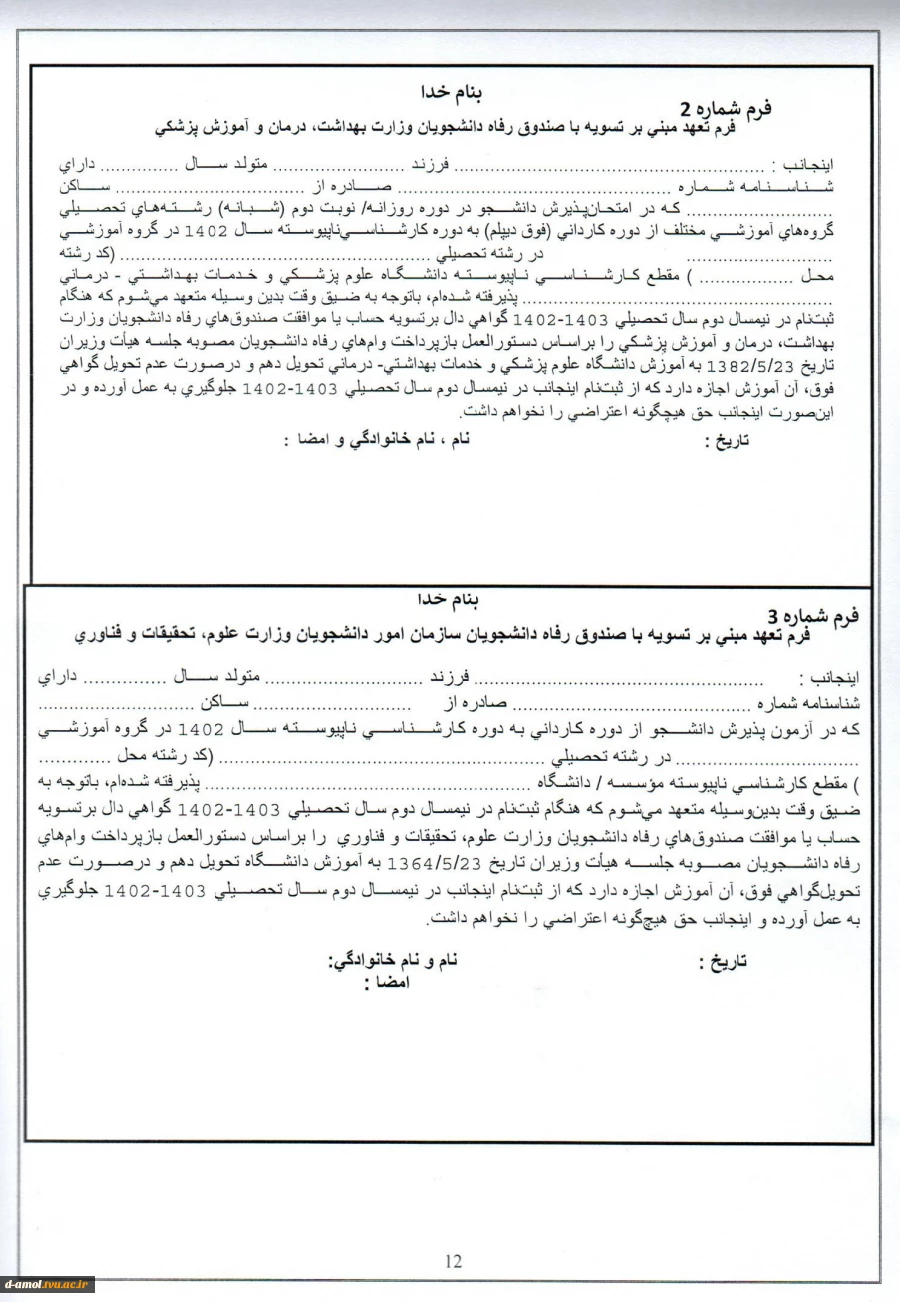 بنام خدا
فرم شماره 2
فرم تعهد مبني بر تسويه با صندوق رفاه دانشجويان وزارت بهداشت، درمان و آموزش پزشكي
اينجانب : ........................................................ فرزند ........................ متولد ســال ............... داراي
شـــناســـنامه شـــماره .................................................. صـــادره از ................................... ســـاكن
........................... كـه در امتحـان‌پـذيرش دانشـــجو در دوره روزانـه/ نوبـت دوم (شـــبـانـه) رشـــتـه‌هـاي تحصـــيلي
گروه‌هاي آموزشـــي مختلف از دوره كارداني (فوق ديپلم) به دوره كارشـــناســـي‌ناپيوســـته ســـال 1402 در گروه آموزشـــي
........................... در رشـته تحصـيلي ......................................................... (كد رشـته
محل ................. ) مقطع كـارشـــنـاســـي نـاپيوســـتـه دانشـــگـاه علوم پزشـــكي و خـدمـات بهـداشـــتي - درمـاني
......................................................... پذيرفته شده‌ام، باتوجه به ضيق وقت بدين وسيله متعهد مي‌شوم كه هنگام
ثبت‌نام در نيمسال دوم سال تحصيلي 1403-1402 گواهي دال برتسويه حساب يا موافقت صندوق‌هاي رفاه دانشجويان وزارت
بهداشت، درمان و آموزش پزشكي را براساس دستورالعمل بازپرداخت وام‌هاي رفاه دانشجويان مصوبه جلسه هيأت وزيران
تاريخ 1382/5/23 به آموزش دانشگاه علوم پزشكي و خدمات بهداشتي- درماني تحويل دهم و درصورت عدم تحويل گواهي
فوق، آن آموزش اجازه دارد كه از ثبت‌نام اينجانب در نيمسال دوم سال تحصيلي 1403-1402 جلوگيري به عمل آورده و در
اين‌صورت اينجانب حق هيچگونه اعتراضي را نخواهم داشت.
تاريخ : نام ، نام خانوادگي و امضا :
بنام خدا
فرم شماره 3
فرم تعهد مبني بر تسويه با صندوق رفاه دانشجويان سازمان امور دانشجويان وزارت علوم، تحقيقات و فناوري
اينجانب : ................................................ فرزند ............................. متولد ســال ............... داراي
شناسنامه شماره ............................................ صادره از ............................. ســـاكن .............................
كه در آزمون پذيرش دانشـــجو از دوره كارداني به دوره كارشـــناســـي ناپيوســـته ســـال 1402 در گروه آموزشـــي
.................................. در رشته تحصيلي ............................................................ (كد رشته محل .............
) مقطع كارشناسي ناپيوسته مؤسسه / دانشگاه ............................................................ پذيرفته شده‌ام، باتوجه به
ضيق وقت بدين‌وسيله متعهد مي‌شوم كه هنگام ثبت‌نام در نيمسال دوم سال تحصيلي 1403-1402 گواهي دال برتسويه
حساب يا موافقت صندوق‌هاي رفاه دانشجويان وزارت علوم، تحقيقات و فناوري را براساس دستورالعمل بازپرداخت وام‌هاي
رفاه دانشـــجويان مصـــوبه جلســـه هيأت وزيران تاريخ 1364/5/23 به آموزش دانشـــگاه تحويل دهم و درصـــورت عدم
تحويل‌گواهي فوق، آن آموزش اجازه دارد كه از ثبت‌نام اينجانب در نيمســـال دوم ســـال تحصـــيلي 1403-1402 جلوگيري
به عمل آورده و اينجانب حق هيچ‌گونه اعتراضي را نخواهم داشت.
تاريخ : نام و نام خانوادگي:
امضا :
12
d-amol.tvu.ac.ir